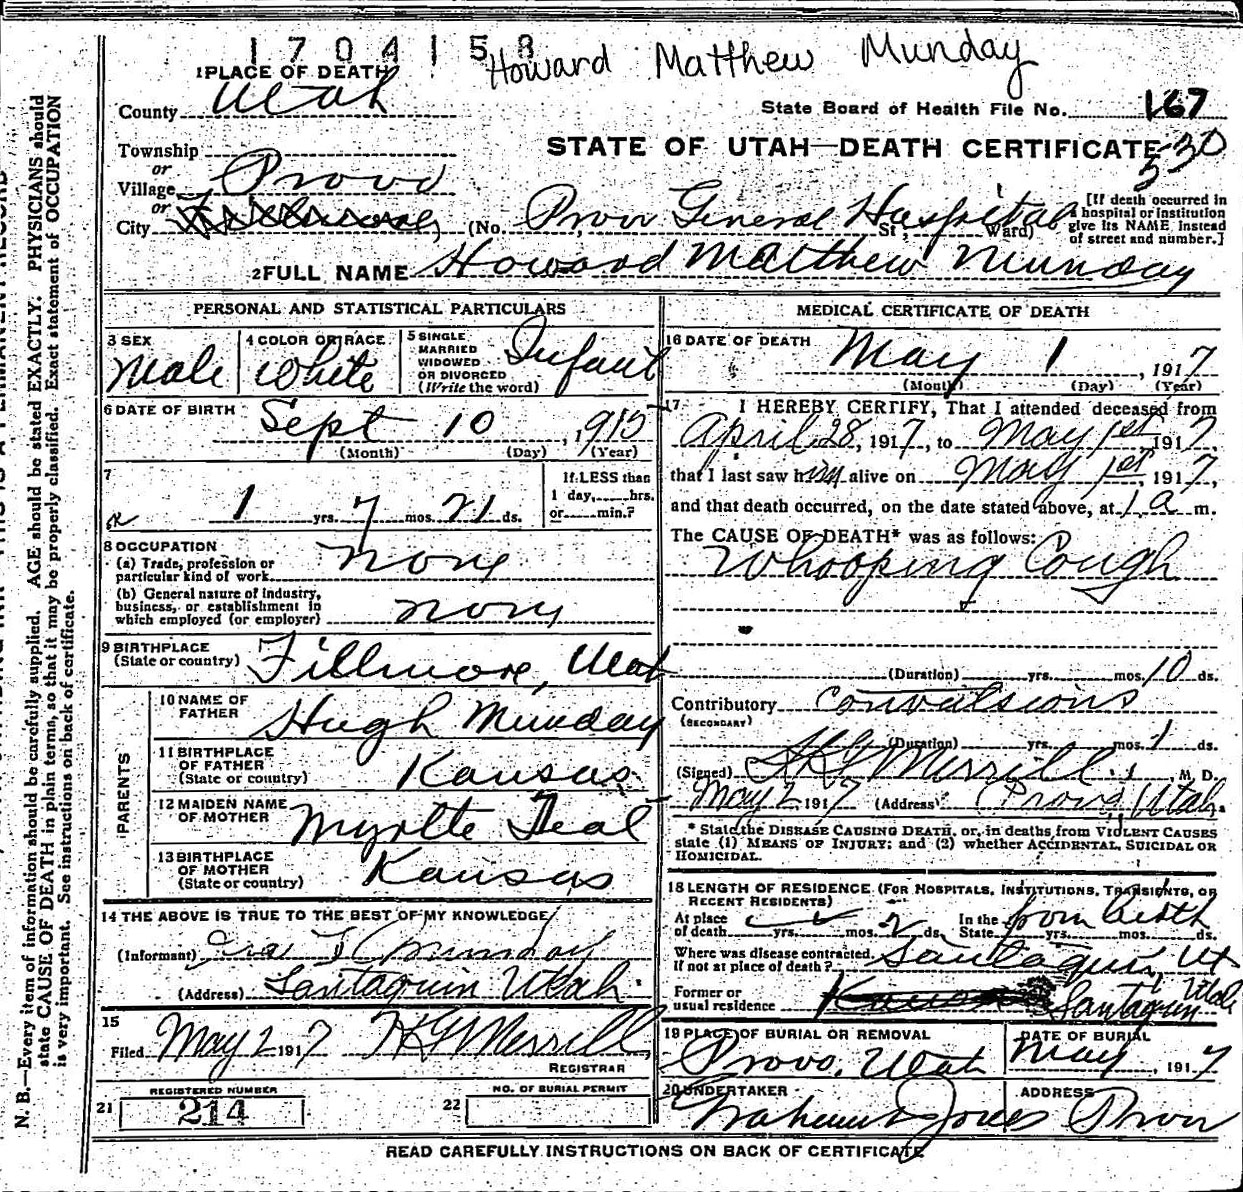 1704158
Howard Matthew Munday
1 PLACE OF DEATH
County Utah
State Board of Health File No. 167
STATE OF UTAH—DEATH CERTIFICATE
530
Township
or
Village Provo
or
City (No. Provo General Hospital St.; Ward)
[If death occurred in
a hospital or institution
give its NAME instead
of street and number.]
2 FULL NAME Howard Matthew Munday
PERSONAL AND STATISTICAL PARTICULARS
3 SEX
Male
4 COLOR OR RACE
White
5 SINGLE
MARRIED
WIDOWED
OR DIVORCED
(Write the word)
Infant
6 DATE OF BIRTH
Sept 10, 1915
(Month) (Day) (Year)
7
1 yrs. 7 mos. 21 ds.
If LESS than
1 day, hrs.
or min.?
8 OCCUPATION
(a) Trade, profession or
particular kind of work None
(b) General nature of industry,
business, or establishment in
which employed (or employer) None
9 BIRTHPLACE
(State or country) Fillmore, Utah
PARENTS
10 NAME OF
FATHER Hugh Munday
11 BIRTHPLACE
OF FATHER
(State or country) Kansas
12 MAIDEN NAME
OF MOTHER Myrtle Teal
13 BIRTHPLACE
OF MOTHER
(State or country) Kansas
14 THE ABOVE IS TRUE TO THE BEST OF MY KNOWLEDGE
(Informant) Munday
(Address) Santaquin Utah
15
Filed May 2 1917 Merrill
REGISTRAR
REGISTERED NUMBER
21 214
NO. OF BURIAL PERMIT
22
MEDICAL CERTIFICATE OF DEATH
16 DATE OF DEATH
May 1, 1917
(Month) (Day) (Year)
17 I HEREBY CERTIFY, That I attended deceased from
April 28, 1917, to May 1st 1917,
that I last saw him alive on May 1st, 1917,
and that death occurred, on the date stated above, at 1 a m.
The CAUSE OF DEATH* was as follows:
Whooping Cough
(Duration) yrs. mos. 10 ds.
Contributory Convalsions
(SECONDARY)
(Duration) yrs. mos. 1 ds.
(Signed) Merrill, M. D.
May 2 1917 (Address) Provo, Utah.
* State the DISEASE CAUSING DEATH, or, in deaths from VIOLENT CAUSES
state (1) MEANS OF INJURY; and (2) whether ACCIDENTAL, SUICIDAL OR
HOMICIDAL.
18 LENGTH OF RESIDENCE (FOR HOSPITALS, INSTITUTIONS, TRANSIENTS, OR
RECENT RESIDENTS)
At place
of death yrs. mos. 2 ds.
In the
State yrs. mos. ds.
from birth
Where was disease contracted,
If not at place of death? Santaquin, Ut
Former or
usual residence Santaquin Utah
19 PLACE OF BURIAL OR REMOVAL
Provo, Utah
DATE OF BURIAL
May, 1917
20 UNDERTAKER
Jones
ADDRESS
Provo
READ CAREFULLY INSTRUCTIONS ON BACK OF CERTIFICATE
N. B.—Every item of information should be carefully supplied. AGE should be stated EXACTLY. PHYSICIANS should
state CAUSE OF DEATH in plain terms, so that it may be properly classified. Exact statement of OCCUPATION
is very important. See instructions on back of certificate.